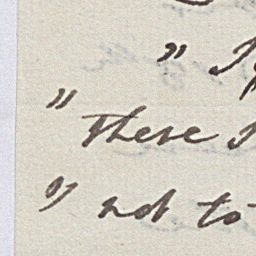 "
" These
" not to